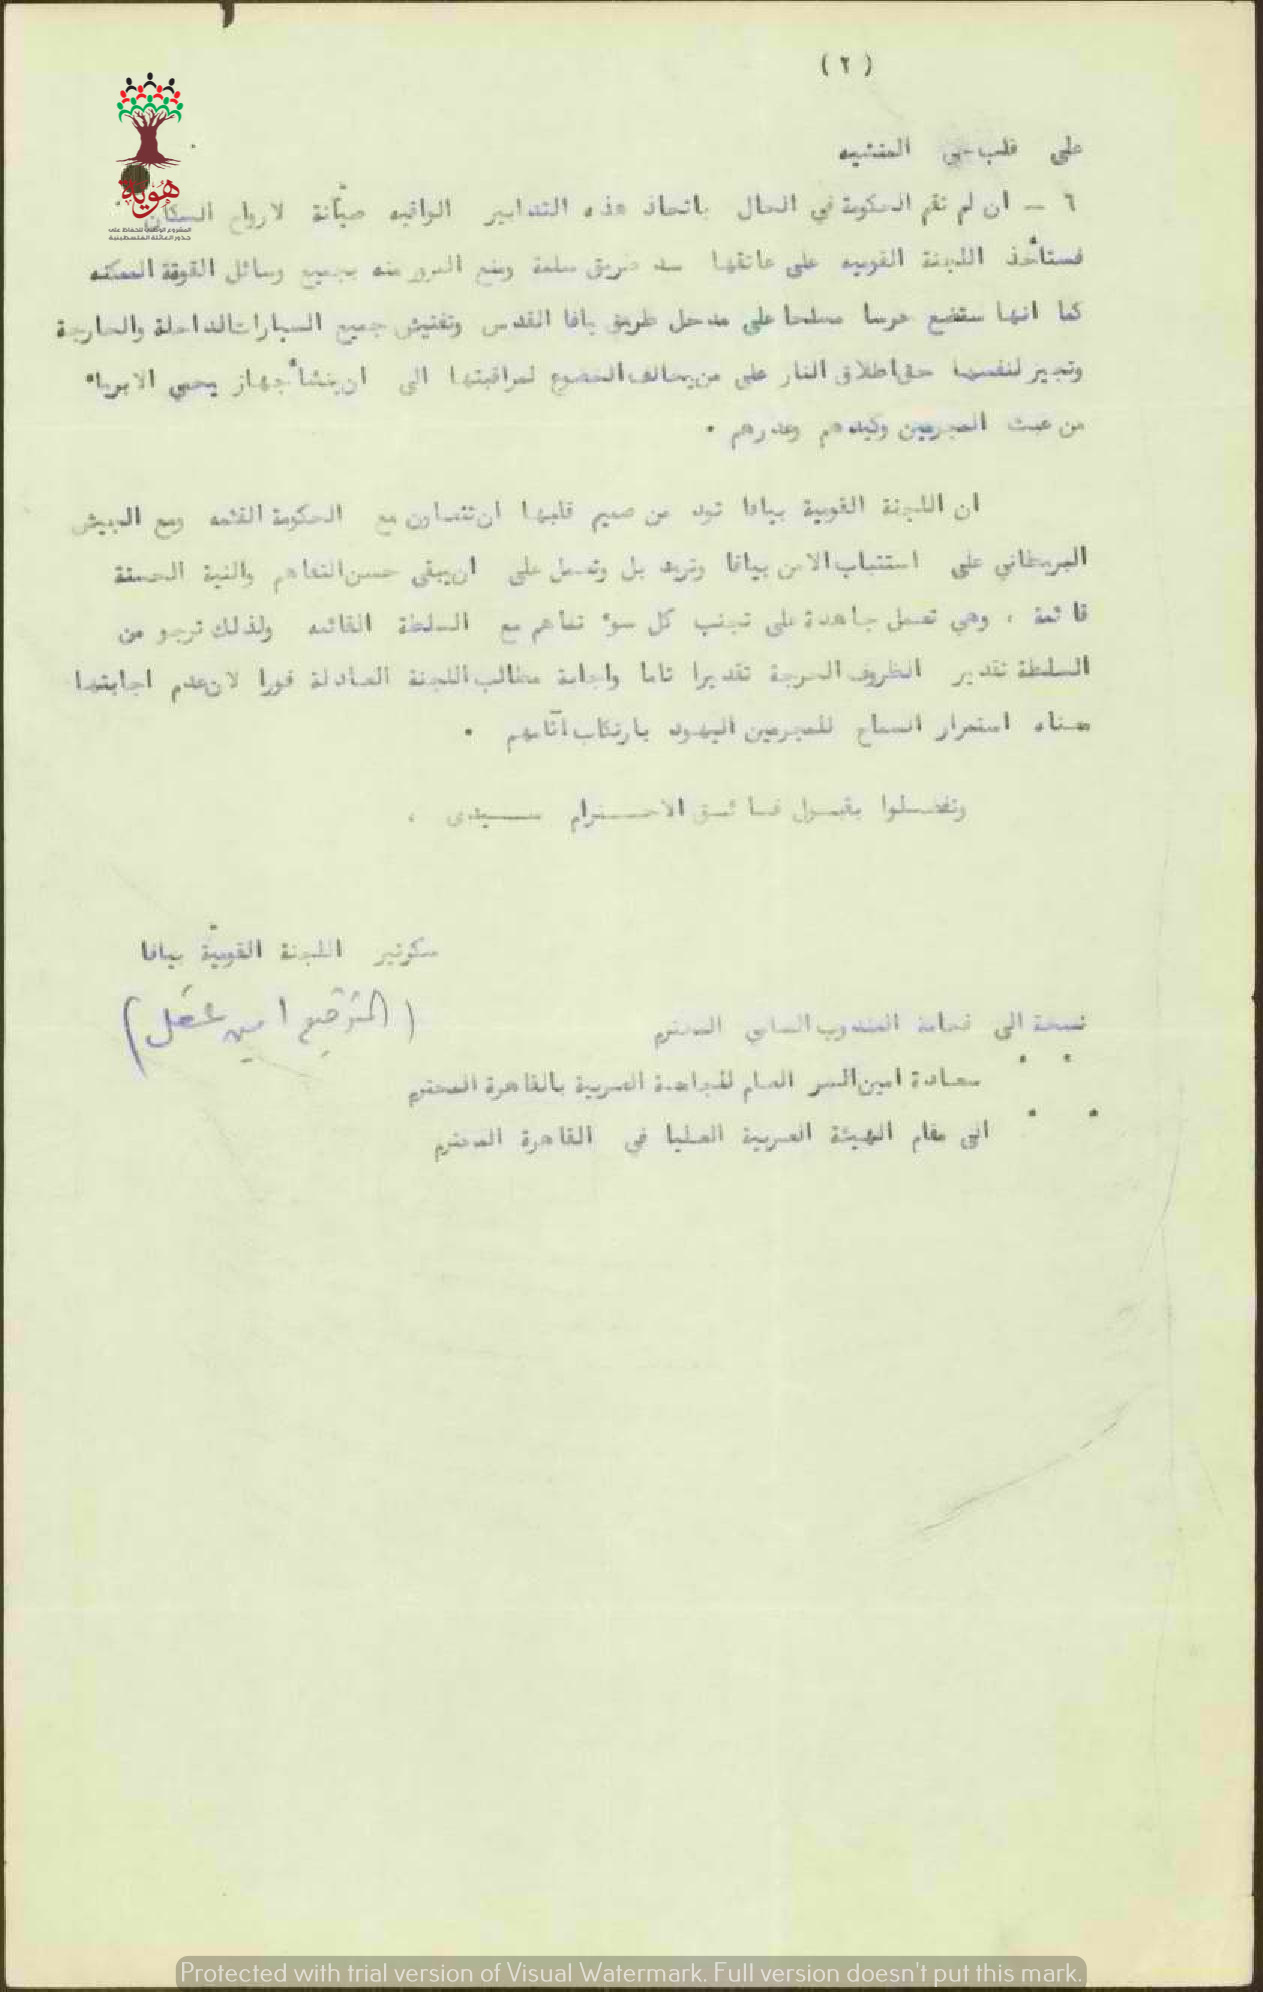 ( ٢ )
على قلب حي المنشيه
٦ — ان لم تقم الحكومة في الحال باتخاذ هذه التدابير الواقيه صيانة لارواح السكان
فستأخذ اللجنة القوميه على عاتقها سد طريق سلمة ومنع المرور منه بجميع وسائل القوة الممكنه
كما انها ستضع حرسا مسلحا على مدخل طريق يافا القدس وتفتيش جميع السيارات الداخلة والخارجة
وتجيز لنفسها حق اطلاق النار على من يخالف الخضوع لمراقبتها الى ان ينشأ جهاز يحمي الابرياء
من عبث المجرمين وكيدهم وغدرهم .
ان اللجنة القومية بيافا تود من صميم قلبها ان تتعاون مع الحكومة القائمه ومع الجيش
البريطاني على استتباب الامن بيافا وتريد بل وتعمل على ان يبقى حسن التفاهم والنية الحسنة
قائمة ، وهي تعمل جاهدة على تجنب كل سوء تفاهم مع السلطة القائمه ولذلك ترجو من
السلطة تقدير الظروف الحرجة تقديرا تاما واجابة مطالب اللجنة العادلة فورا لان عدم اجابتها
معناه استمرار السماح للمجرمين اليهود بارتكاب آثامهم .
وتفضلوا بقبول فائق الاحترام سيدى ،
سكرتير اللجنة القومية بيافا
( التوقيع امين عقل )
نسخة الى فخامة المندوب السامي المحترم
" " سعادة امين السر العام للجامعة العربية بالقاهرة المحترم
" " الى مقام الهيئة العربية العليا في القاهرة المحترم
هوية
المشروع الوطني للحفاظ على
جذور العائلة الفلسطينية
Protected with trial version of Visual Watermark. Full version doesn't put this mark.